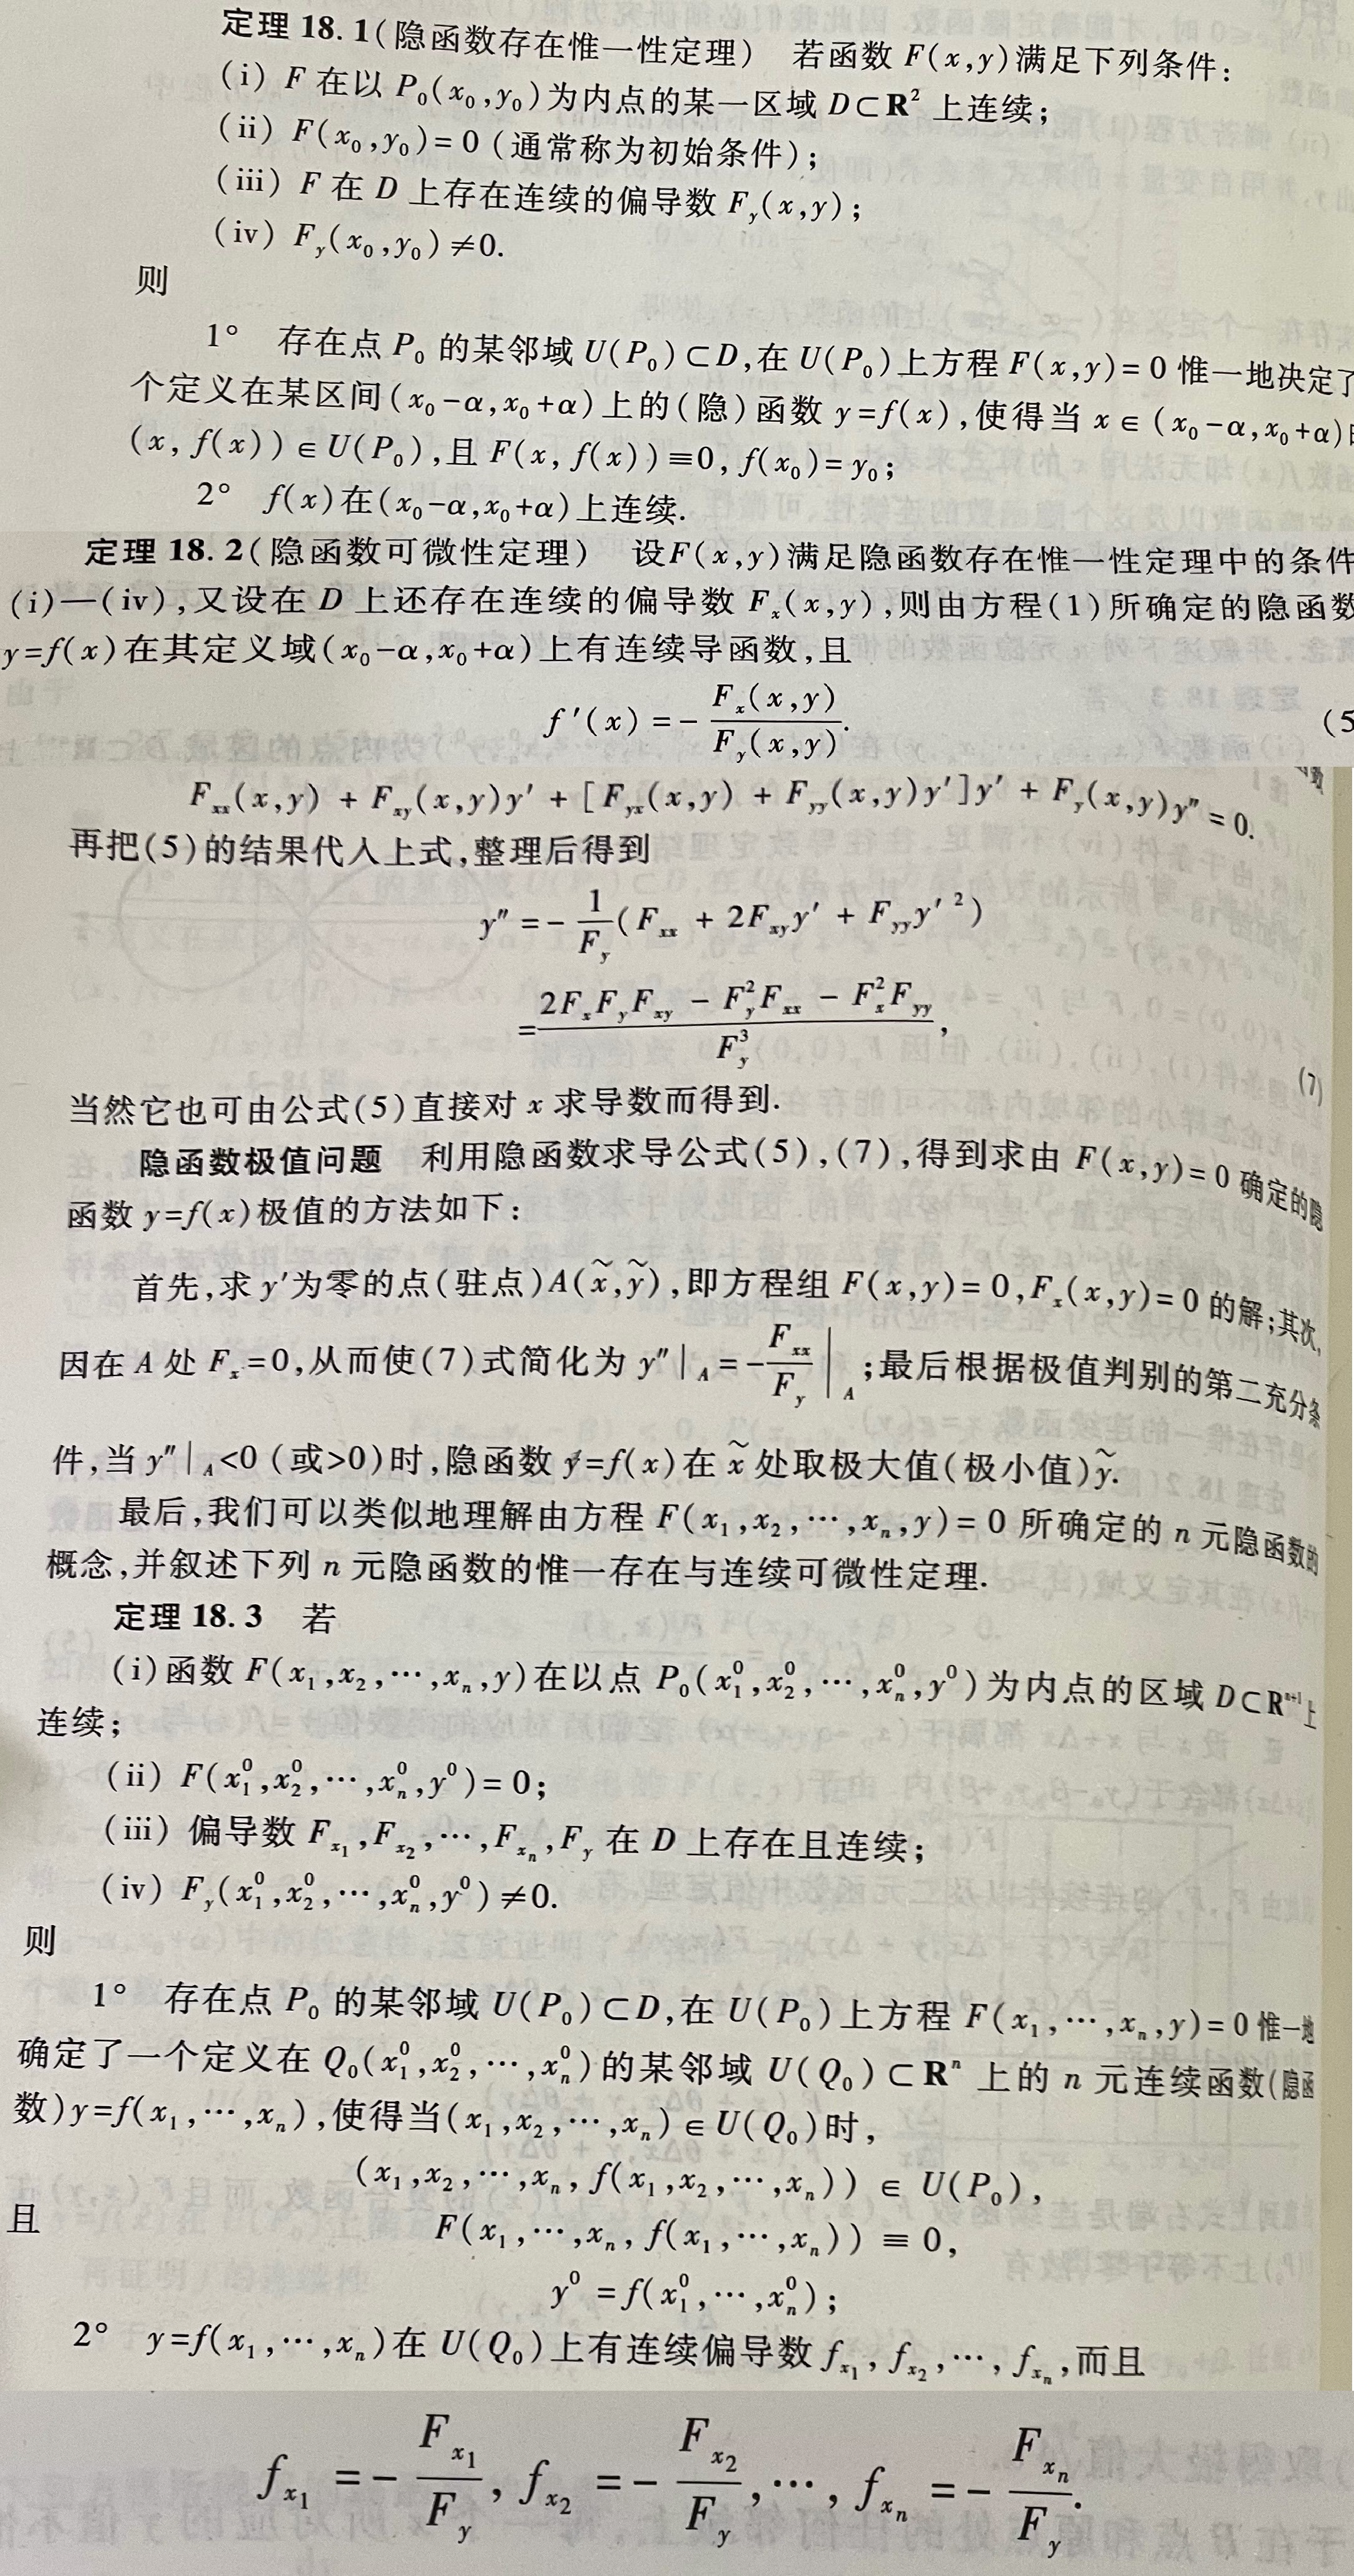 定理 18.1(隐函数存在惟一性定理) 若函数 F(x,y)满足下列条件:
(i) F 在以 P₀(x₀,y₀)为内点的某一区域 D⊂R² 上连续;
(ii) F(x₀,y₀)=0 (通常称为初始条件);
(iii) F 在 D 上存在连续的偏导数 F_y(x,y);
(iv) F_y(x₀,y₀)≠0.
则
1° 存在点 P₀ 的某邻域 U(P₀)⊂D,在 U(P₀)上方程 F(x,y)=0 惟一地决定了
个定义在某区间(x₀-α,x₀+α)上的(隐)函数 y=f(x),使得当 x∈(x₀-α,x₀+α)
(x, f(x))∈U(P₀),且 F(x, f(x))≡0, f(x₀)=y₀;
2° f(x)在(x₀-α,x₀+α)上连续.
定理 18.2(隐函数可微性定理) 设F(x,y)满足隐函数存在惟一性定理中的条件
(i)—(iv),又设在 D 上还存在连续的偏导数 F_x(x,y),则由方程(1)所确定的隐函数
y=f(x)在其定义域(x₀-α,x₀+α)上有连续导函数,且
f′(x)=-F_x(x,y)/F_y(x,y). (5
F_xx(x,y) + F_xy(x,y)y′ + [F_yx(x,y) + F_yy(x,y)y′]y′ + F_y(x,y)y″=0.
再把(5)的结果代入上式,整理后得到
y″=-1/F_y(F_xx + 2F_xy y′ + F_yy y′²)
=(2F_xF_yF_xy - F_y²F_xx - F_x²F_yy)/F_y³, (7)
当然它也可由公式(5)直接对 x 求导数而得到.
隐函数极值问题 利用隐函数求导公式(5),(7),得到求由 F(x,y)=0 确定的隐
函数 y=f(x)极值的方法如下:
首先,求 y′为零的点(驻点)A(x̃,ỹ),即方程组 F(x,y)=0,F_x(x,y)=0 的解;其次,
因在 A 处 F_x=0,从而使(7)式简化为 y″|_A=-F_xx/F_y|_A;最后根据极值判别的第二充分条
件,当 y″|_A<0 (或>0)时,隐函数 y=f(x)在 x̃ 处取极大值(极小值)ỹ.
最后,我们可以类似地理解由方程 F(x₁,x₂,⋯,xₙ,y)=0 所确定的 n 元隐函数的
概念,并叙述下列 n 元隐函数的惟一存在与连续可微性定理.
定理 18.3 若
(i)函数 F(x₁,x₂,⋯,xₙ,y)在以点 P₀(x₁⁰,x₂⁰,⋯,xₙ⁰,y⁰)为内点的区域 D⊂Rⁿ⁺¹上
连续;
(ii) F(x₁⁰,x₂⁰,⋯,xₙ⁰,y⁰)=0;
(iii) 偏导数 F_x₁,F_x₂,⋯,F_xₙ,F_y 在 D 上存在且连续;
(iv) F_y(x₁⁰,x₂⁰,⋯,xₙ⁰,y⁰)≠0.
则
1° 存在点 P₀ 的某邻域 U(P₀)⊂D,在 U(P₀)上方程 F(x₁,⋯,xₙ,y)=0 惟一地
确定了一个定义在 Q₀(x₁⁰,x₂⁰,⋯,xₙ⁰)的某邻域 U(Q₀)⊂Rⁿ 上的 n 元连续函数(隐函
数)y=f(x₁,⋯,xₙ),使得当(x₁,x₂,⋯,xₙ)∈U(Q₀)时,
(x₁,x₂,⋯,xₙ, f(x₁,x₂,⋯,xₙ)) ∈ U(P₀),
且
F(x₁,⋯,xₙ, f(x₁,⋯,xₙ)) ≡ 0,
y⁰=f(x₁⁰,⋯,xₙ⁰);
2° y=f(x₁,⋯,xₙ)在 U(Q₀)上有连续偏导数 f_x₁, f_x₂,⋯, f_xₙ,而且
f_x₁=-F_x₁/F_y, f_x₂=-F_x₂/F_y,⋯, f_xₙ=-F_xₙ/F_y.